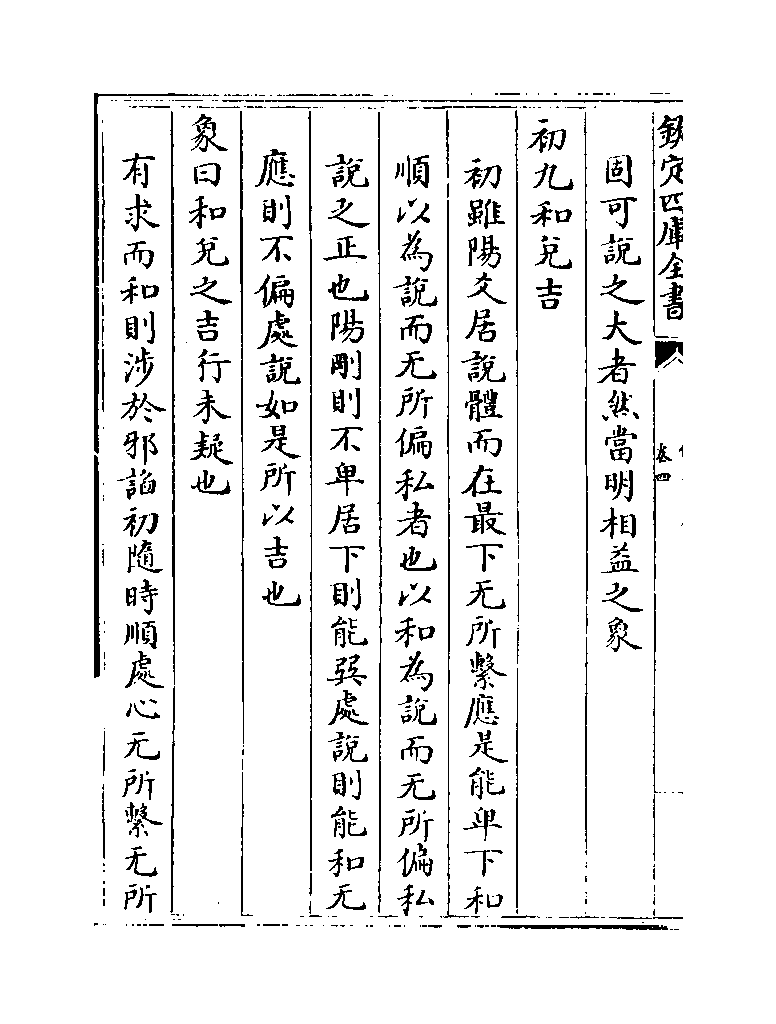 欽定四庫全書
卷四
固可說之大者然當明相益之象
初九和兌吉
初雖陽爻居說體而在最下无所繫應是能卑下和
順以為說而无所偏私者也以和為說而无所偏私
說之正也陽剛則不卑居下則能巽處說則能和无
應則不偏處說如是所以吉也
象曰和兌之吉行未疑也
有求而和則涉於邪諂初隨時順處心无所繫无所